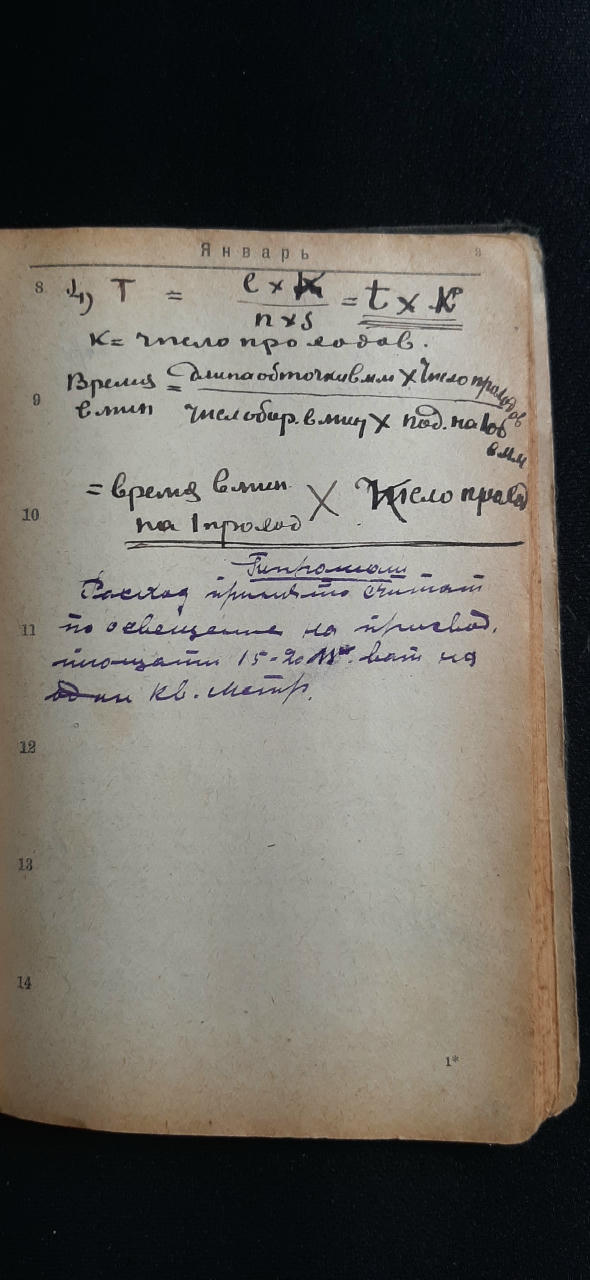 Январь
8 4) T = l x k / n x s = t x k
k = число проходов.
9 Время = длина обточки в мм X Число проходов
в мин число обор. в мин X под. на 1 об
в мм
= время в мин. X Число проход
10 на 1 проход
Расход принято считать
11 по освещению на производ.
площади 15-20 ват на
один кв. метр.
12
13
14
1*